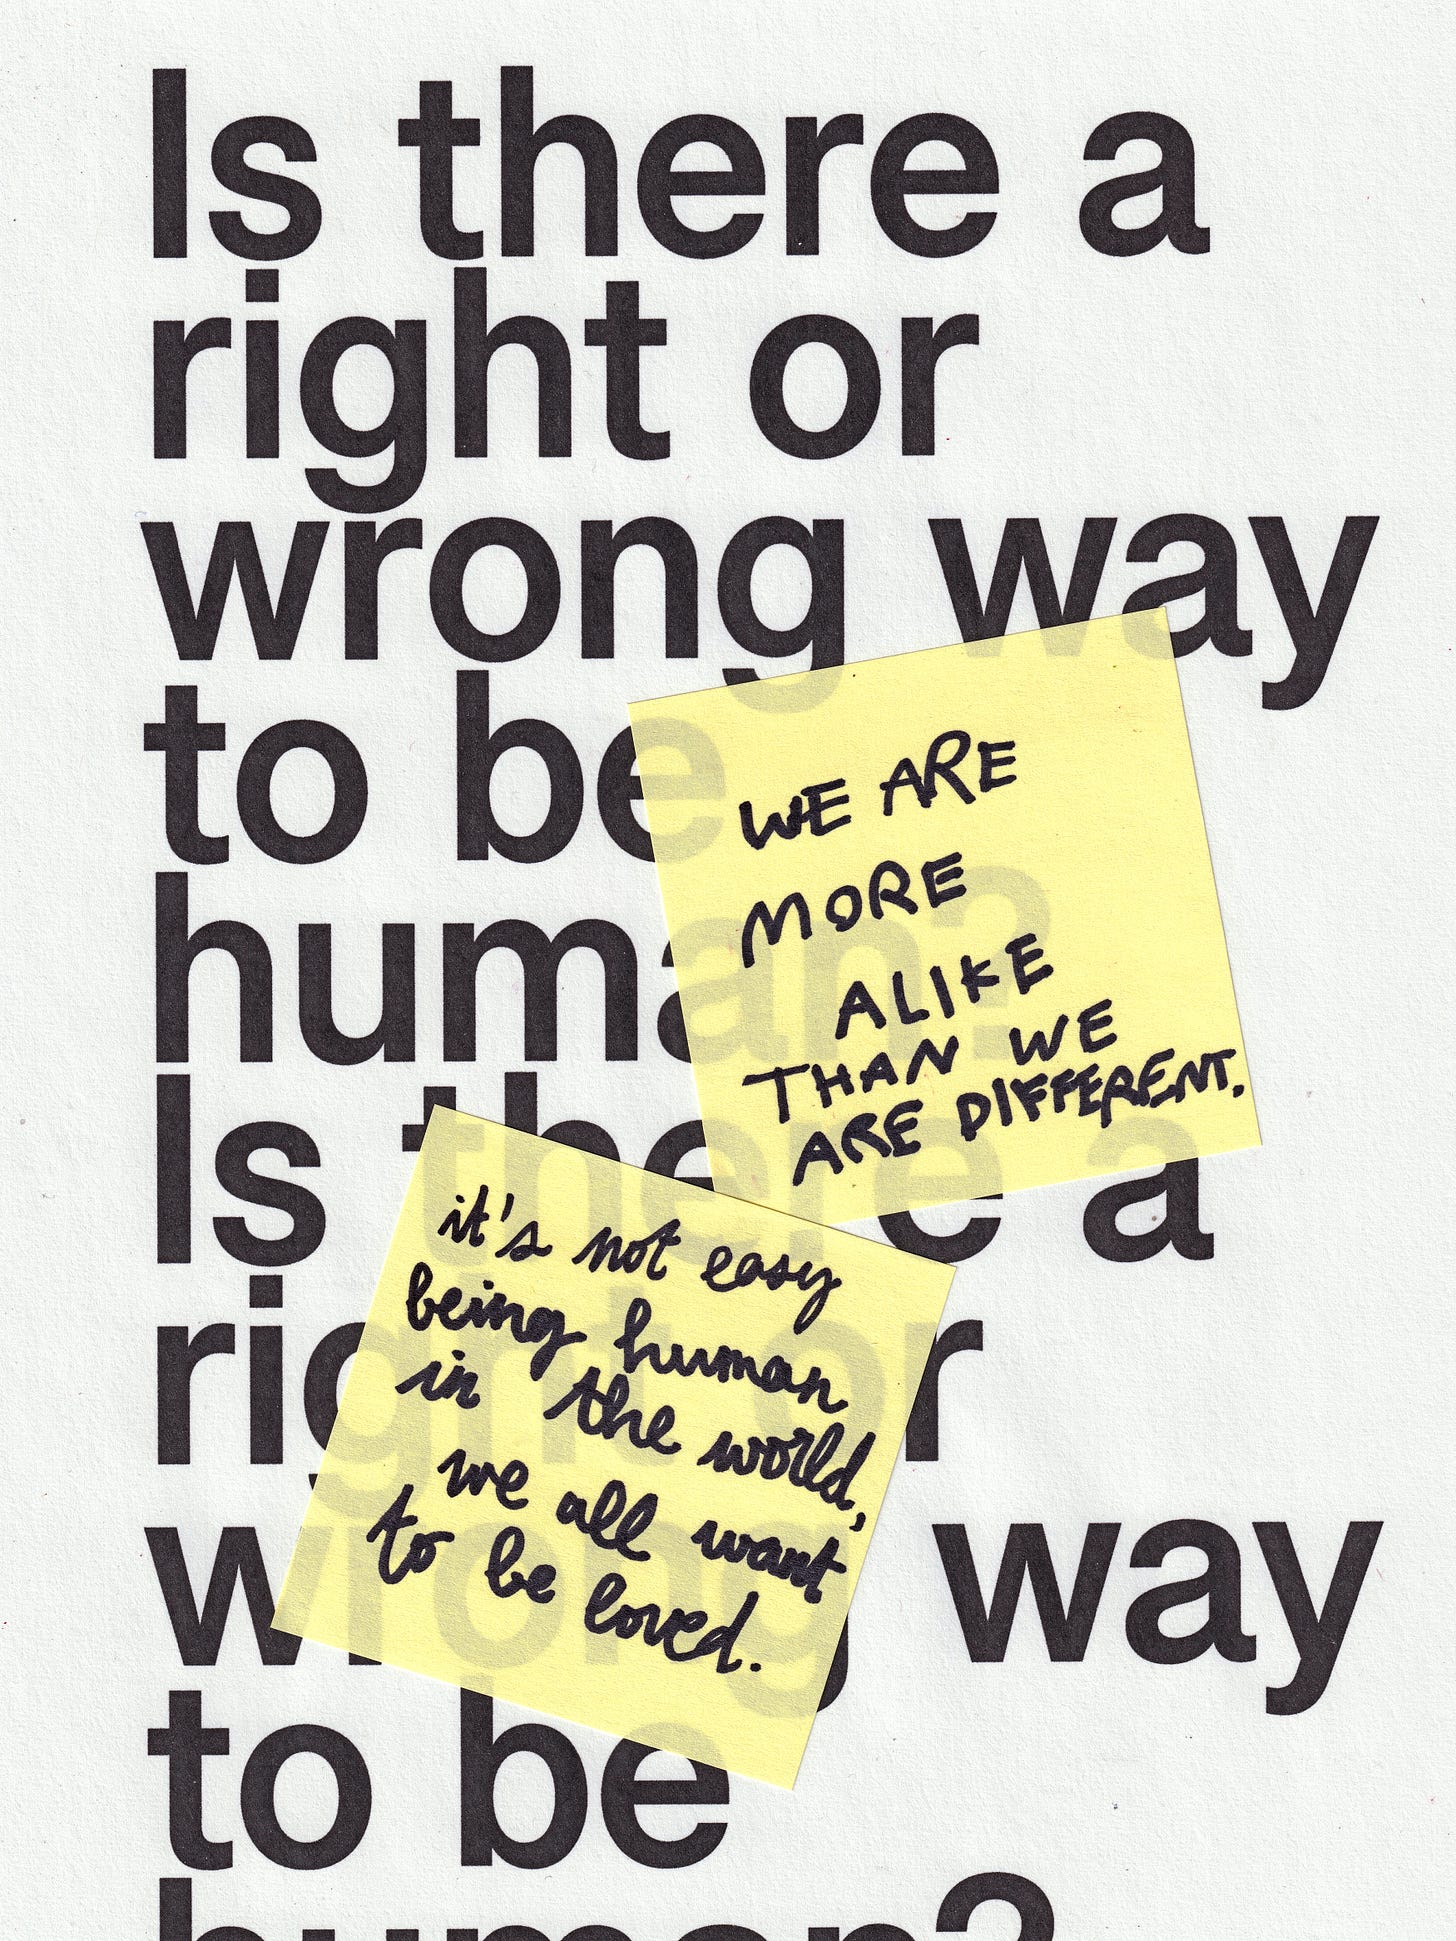 Is there a
right or
wrong way
to be
human?
Is there a
right or
wrong way
to be
human?
WE ARE
MORE
ALIKE
THAN WE
ARE DIFFERENT.
it's not easy
being human
in the world,
we all want
to be loved.